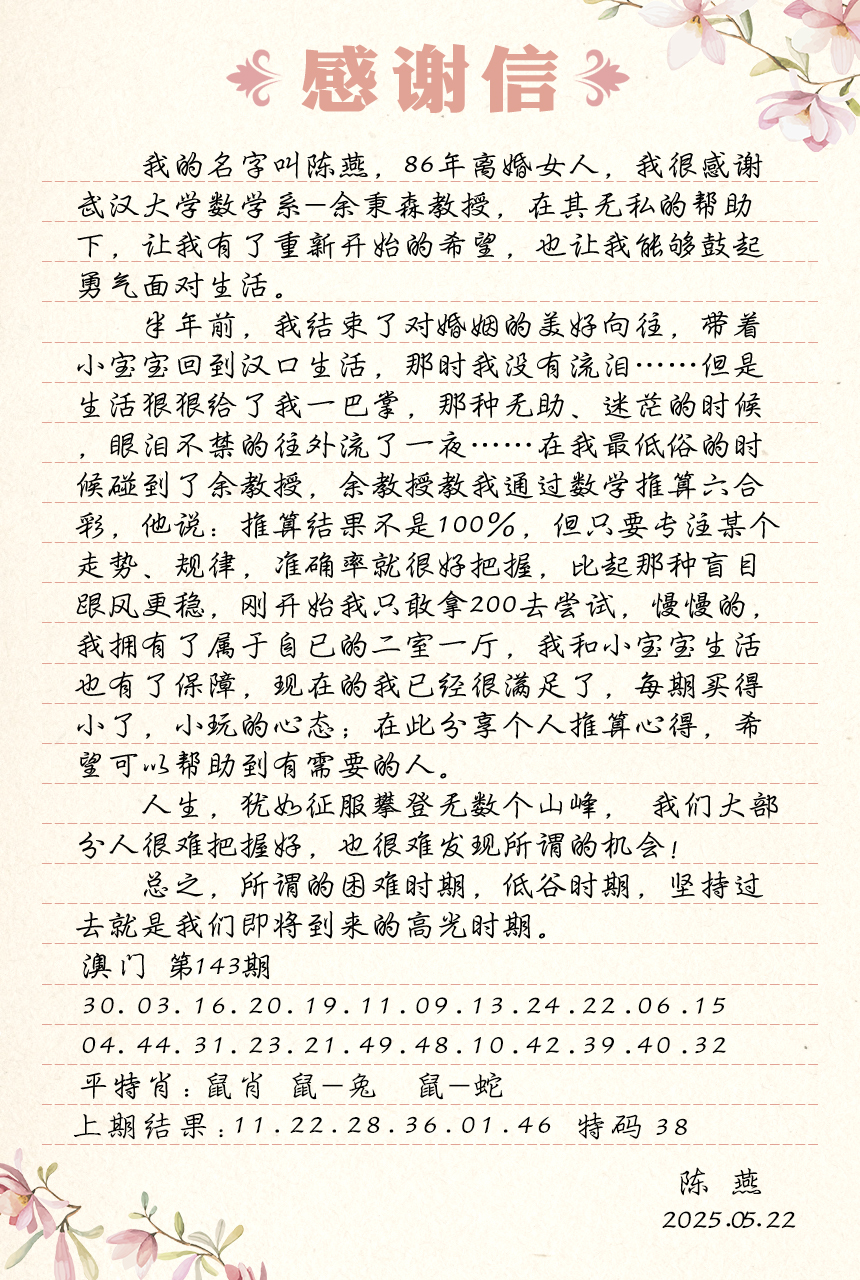 感谢信
我的名字叫陈燕，86年离婚女人，我很感谢
武汉大学数学系—余秉森教授，在其无私的帮助
下，让我有了重新开始的希望，也让我能够鼓起
勇气面对生活。
半年前，我结束了对婚姻的美好向往，带着
小宝宝回到汉口生活，那时我没有流泪……但是
生活狠狠给了我一巴掌，那种无助、迷茫的时候
，眼泪不禁的往外流了一夜……在我最低俗的时
候碰到了余教授，余教授教我通过数学推算六合
彩，他说：推算结果不是100%，但只要专注某个
走势、规律，准确率就很好把握，比起那种盲目
跟风更稳，刚开始我只敢拿200去尝试，慢慢的，
我拥有了属于自已的二室一厅，我和小宝宝生活
也有了保障，现在的我已经很满足了，每期买得
小了，小玩的心态；在此分享个人推算心得，希
望可以帮助到有需要的人。
人生，犹如征服攀登无数个山峰， 我们大部
分人很难把握好，也很难发现所谓的机会！
总之，所谓的困难时期，低谷时期，坚持过
去就是我们即将到来的高光时期。
澳门 第143期
30.03.16.20.19.11.09.13.24.22.06.15
04.44.31.23.21.49.48.10.42.39.40.32
平特肖：鼠肖 鼠—兔 鼠—蛇
上期结果：11.22.28.36.01.46 特码 38
陈 燕
2025.05.22